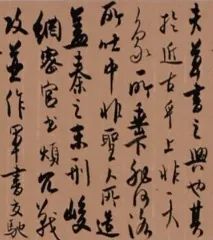 夫草書之興也其
於近古乎上非天
象所垂下非河洛
所吐中非聖人所造
蓋秦之末刑峻
網密官書煩冗戰
攻並作軍書交馳